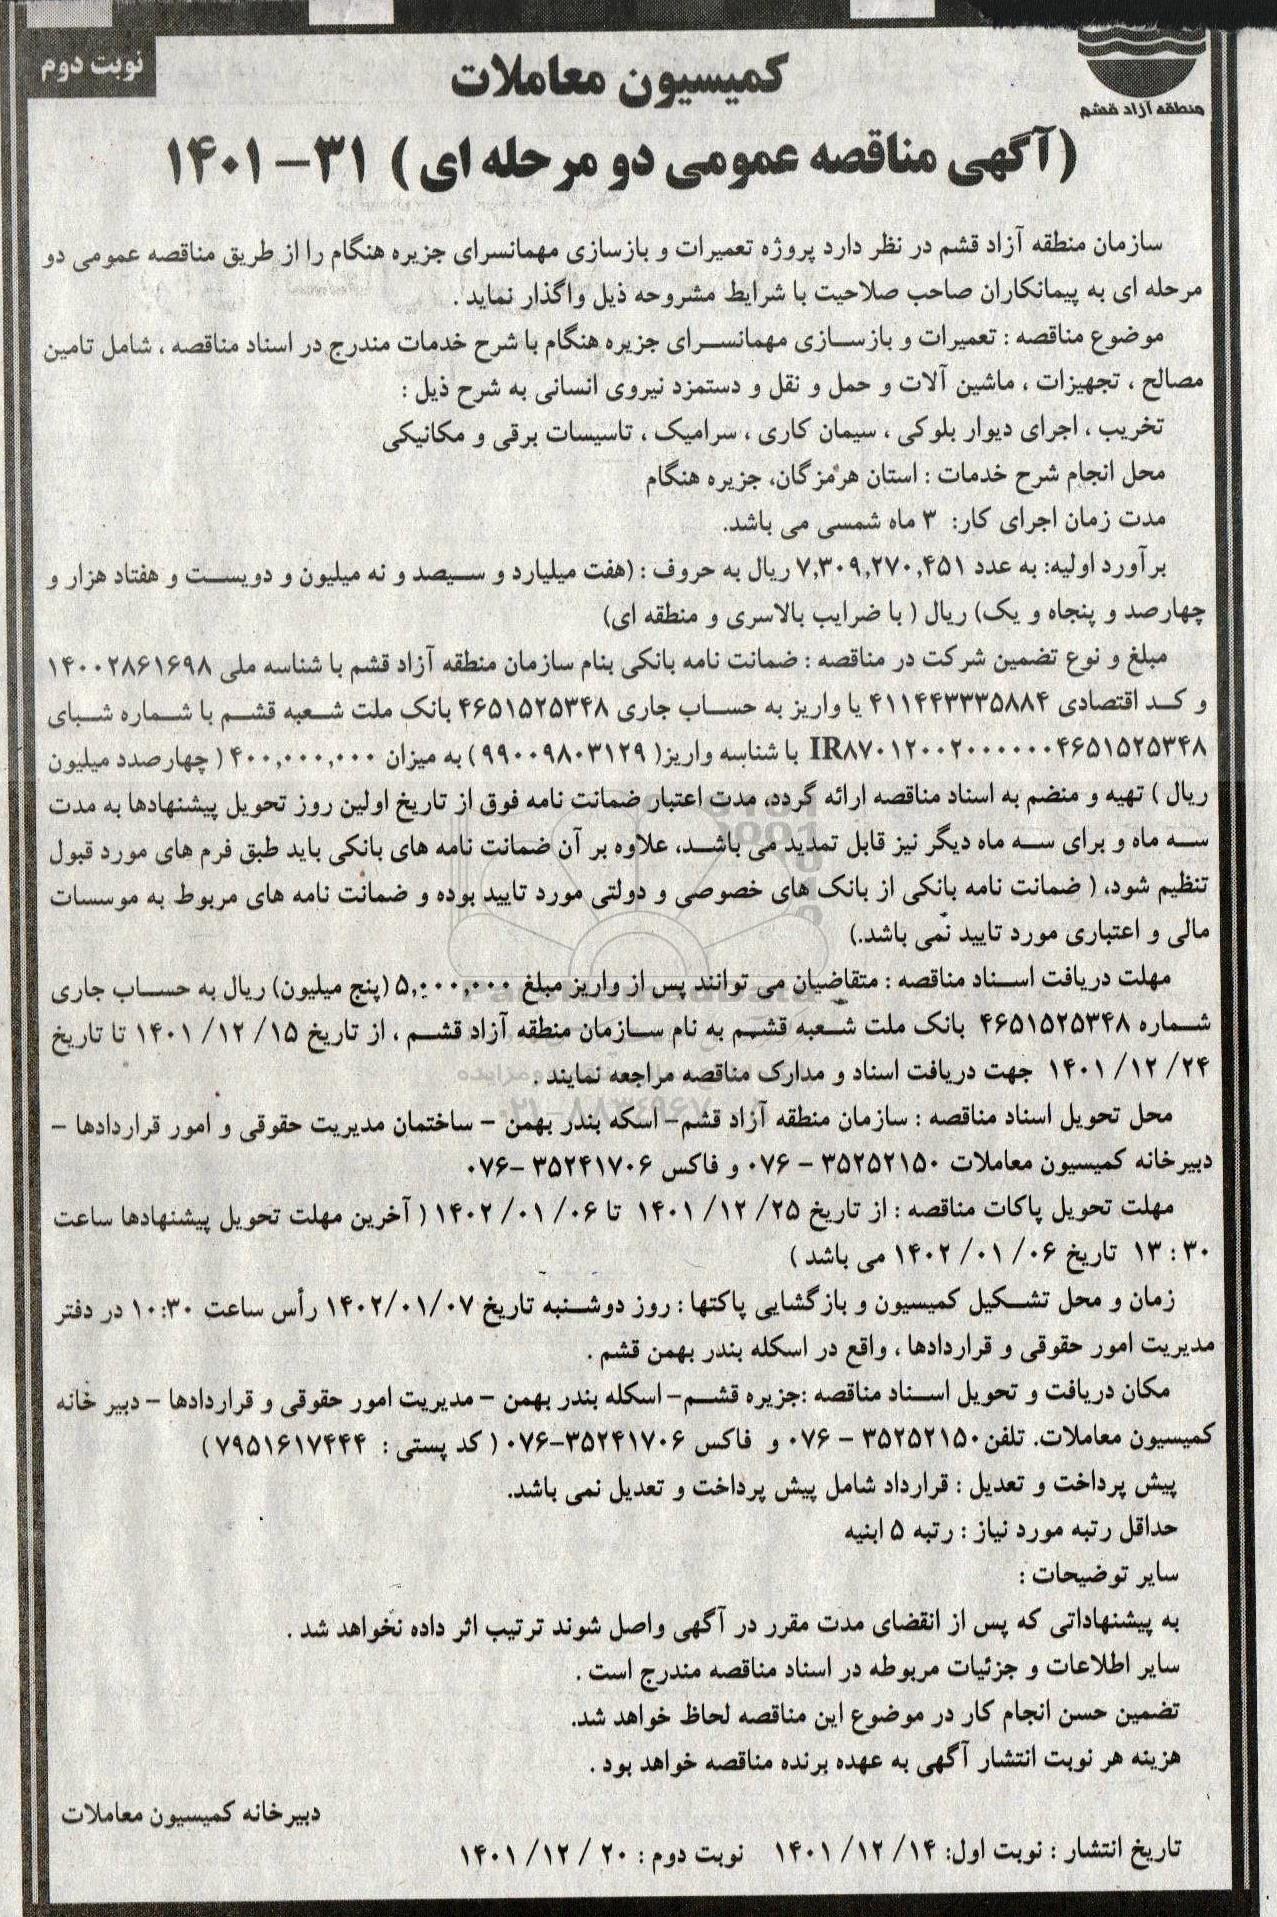 نوبت دوم
منطقه آزاد قشم
کمیسیون معاملات
(آگهی مناقصه عمومی دو مرحله ای ) ۳۱- ۱۴۰۱
سازمان منطقه آزاد قشم در نظر دارد پروژه تعمیرات و بازسازی مهمانسرای جزیره هنگام را از طریق مناقصه عمومی دو
مرحله ای به پیمانکاران صاحب صلاحیت با شرایط مشروحه ذیل واگذار نماید .
موضوع مناقصه : تعمیرات و بازسازی مهمانسرای جزیره هنگام با شرح خدمات مندرج در اسناد مناقصه ، شامل تامین
مصالح ، تجهیزات ، ماشین آلات و حمل و نقل و دستمزد نیروی انسانی به شرح ذیل :
تخریب ، اجرای دیوار بلوکی ، سیمان کاری ، سرامیک ، تاسیسات برقی و مکانیکی
محل انجام شرح خدمات : استان هرمزگان، جزیره هنگام
مدت زمان اجرای کار: ۳ ماه شمسی می باشد.
برآورد اولیه: به عدد ۷,۳۰۹,۲۷۰,۴۵۱ ریال به حروف : (هفت میلیارد و سیصد و نه میلیون و دویست و هفتاد هزار و
چهارصد و پنجاه و یک) ریال ( با ضرایب بالاسری و منطقه ای)
مبلغ و نوع تضمین شرکت در مناقصه : ضمانت نامه بانکی بنام سازمان منطقه آزاد قشم با شناسه ملی ۱۴۰۰۲۸۶۱۶۹۸
و کد اقتصادی ۴۱۱۴۴۳۳۳۵۸۸۴ یا واریز به حساب جاری ۴۶۵۱۵۲۵۳۴۸ بانک ملت شعبه قشم با شماره شبای
IR۸۷۰۱۲۰۰۲۰۰۰۰۰۰۰۴۶۵۱۵۲۵۳۴۸ با شناسه واریز( ۹۹۰۰۹۸۰۳۱۲۹) به میزان ۴۰۰,۰۰۰,۰۰۰ ( چهارصدد میلیون
ریال ) تهیه و منضم به اسناد مناقصه ارائه گردد، مدت اعتبار ضمانت نامه فوق از تاریخ اولین روز تحویل پیشنهادها به مدت
سه ماه و برای سه ماه دیگر نیز قابل تمدید می باشد، علاوه بر آن ضمانت نامه های بانکی باید طبق فرم های مورد قبول
تنظیم شود، ( ضمانت نامه بانکی از بانک های خصوصی و دولتی مورد تایید بوده و ضمانت نامه های مربوط به موسسات
مالی و اعتباری مورد تایید نمی باشد.)
مهلت دریافت اسناد مناقصه : متقاضیان می توانند پس از واریز مبلغ ۵,۰۰۰,۰۰۰ (پنج میلیون) ریال به حساب جاری
شماره ۴۶۵۱۵۲۵۳۴۸ بانک ملت شعبه قشم به نام سازمان منطقه آزاد قشم ، از تاریخ ۱۵/ ۱۲/ ۱۴۰۱ تا تاریخ
۲۴/ ۱۲/ ۱۴۰۱ جهت دریافت اسناد و مدارک مناقصه مراجعه نمایند .
محل تحویل اسناد مناقصه : سازمان منطقه آزاد قشم- اسکله بندر بهمن - ساختمان مدیریت حقوقی و امور قراردادها -
دبیرخانه کمیسیون معاملات ۳۵۲۵۲۱۵۰ - ۰۷۶ و فاکس ۳۵۲۴۱۷۰۶ -۰۷۶
مهلت تحویل پاکات مناقصه : از تاریخ ۲۵/ ۱۲/ ۱۴۰۱ تا ۰۶/ ۰۱/ ۱۴۰۲ ( آخرین مهلت تحویل پیشنهادها ساعت
۳۰ : ۱۳ تاریخ ۰۶/ ۰۱/ ۱۴۰۲ می باشد )
زمان و محل تشکیل کمیسیون و بازگشایی پاکتها : روز دوشنبه تاریخ ۱۴۰۲/۰۱/۰۷ رأس ساعت ۱۰:۳۰ در دفتر
مدیریت امور حقوقی و قراردادها ، واقع در اسکله بندر بهمن قشم .
مکان دریافت و تحویل اسناد مناقصه :جزیره قشم- اسکله بندر بهمن - مدیریت امور حقوقی و قراردادها - دبیر خانه
کمیسیون معاملات. تلفن۳۵۲۵۲۱۵۰ - ۰۷۶ و فاکس ۳۵۲۴۱۷۰۶-۰۷۶ ( کد پستی : ۷۹۵۱۶۱۷۴۴۴)
پیش پرداخت و تعدیل : قرارداد شامل پیش پرداخت و تعدیل نمی باشد.
حداقل رتبه مورد نیاز : رتبه ۵ ابنیه
سایر توضیحات :
به پیشنهاداتی که پس از انقضای مدت مقرر در آگهی واصل شوند ترتیب اثر داده نخواهد شد .
سایر اطلاعات و جزئیات مربوطه در اسناد مناقصه مندرج است .
تضمین حسن انجام کار در موضوع این مناقصه لحاظ خواهد شد.
هزینه هر نوبت انتشار آگهی به عهده برنده مناقصه خواهد بود .
دبیرخانه کمیسیون معاملات
تاریخ انتشار : نوبت اول: ۱۴/ ۱۲/ ۱۴۰۱ نوبت دوم : ۲۰ / ۱۲/ ۱۴۰۱